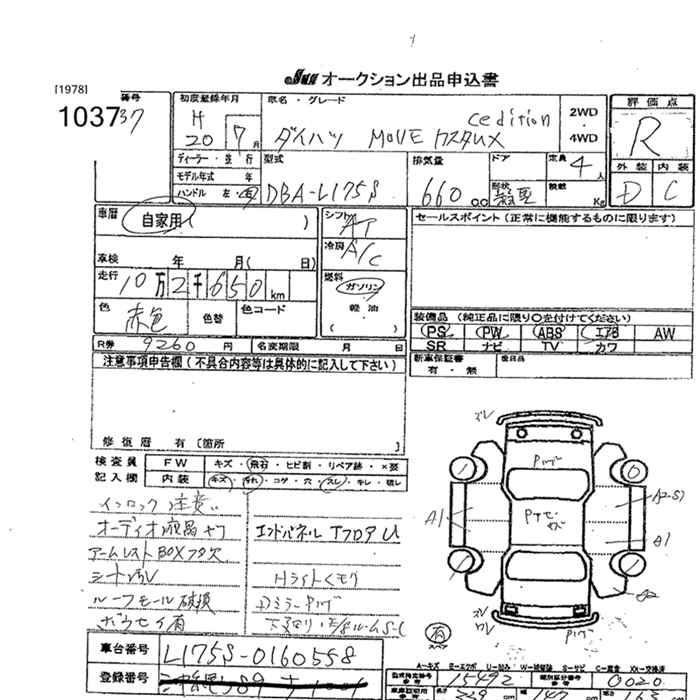 JU オークション出品申込書
[1978]
番号
10373 37
初度登録年月
H 20 7月
車名・グレード
ダイハツ MOVE カスタムX
C edition
2WD・4WD
評価点
R
外装 内装
D C
ディーラー・並行
モデル年式 年
ハンドル 左・右
型式
DBA-L175S
排気量
660 cc
ドア
形状
定員 4人
積載 Kg
車歴
自家用( )
車検 年 月( 日)
走行
10万2千650km
色
赤色
色替
色コード
シフト
AT
冷房
A/C
燃料
ガソリン
軽油
( )
セールスポイント(正常に機能するものに限ります)
装備品(純正品に限り〇を付けてください)
PS PW ABS エアB AW
SR ナビ TV カワ
新車保証書
有・無
後日品
R券 9260円
名変期限 月 日
注意事項申告欄(不具合内容等は具体的に記入して下さい)
修復歴 有〔箇所 〕
検査員
記入欄
FW キズ・飛石・ヒビ割・リペア跡・×要
内装 キズ・汚れ・コゲ・穴・スレ・キレ・欠し
インロック注意
オーディオ液晶ヤケ
アームレストBOXフタ欠
シート汚レ
ルーフモール破損
ボウセイ有
エンドパネル TフロアU
Hライトくもり
A1
A1
有
スペア
A-キズ E-エクボ U-凹み W-補修跡 S-サビ C-腐食 XX-交換済
車台番号
L175S-0160558
登録番号
型式指定番号
15492
類別区分番号
0020